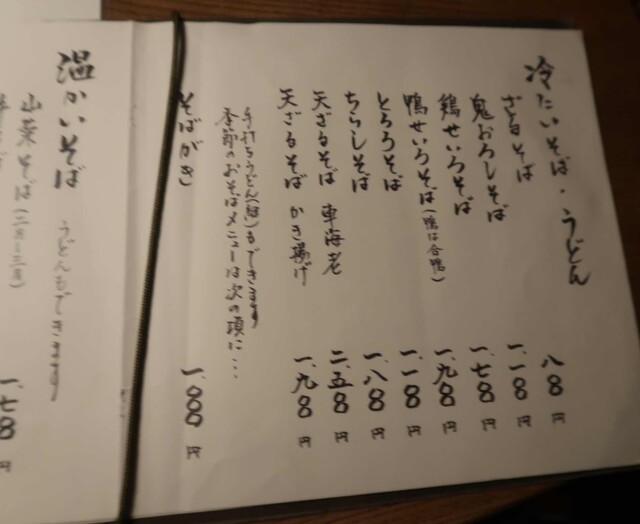 冷たいそば・うどん
ざるそば 八〇〇円
鬼おろしそば 一、一〇〇円
鶏せいろそば 一、七〇〇円
鴨せいろそば（鴨は合鴨） 一、九〇〇円
とろろそば 一、一〇〇円
ちらしそば 一、八〇〇円
天ざるそば 車海老 二、五〇〇円
天ざるそば かき揚げ 一、九〇〇円
手打ちうどん(細)もできます
季節のおそばメニューは次の項に・・・
そばがき 一、〇〇〇円
温かいそば うどんもできます
山菜そば（二月〜三月） 一、七〇〇円